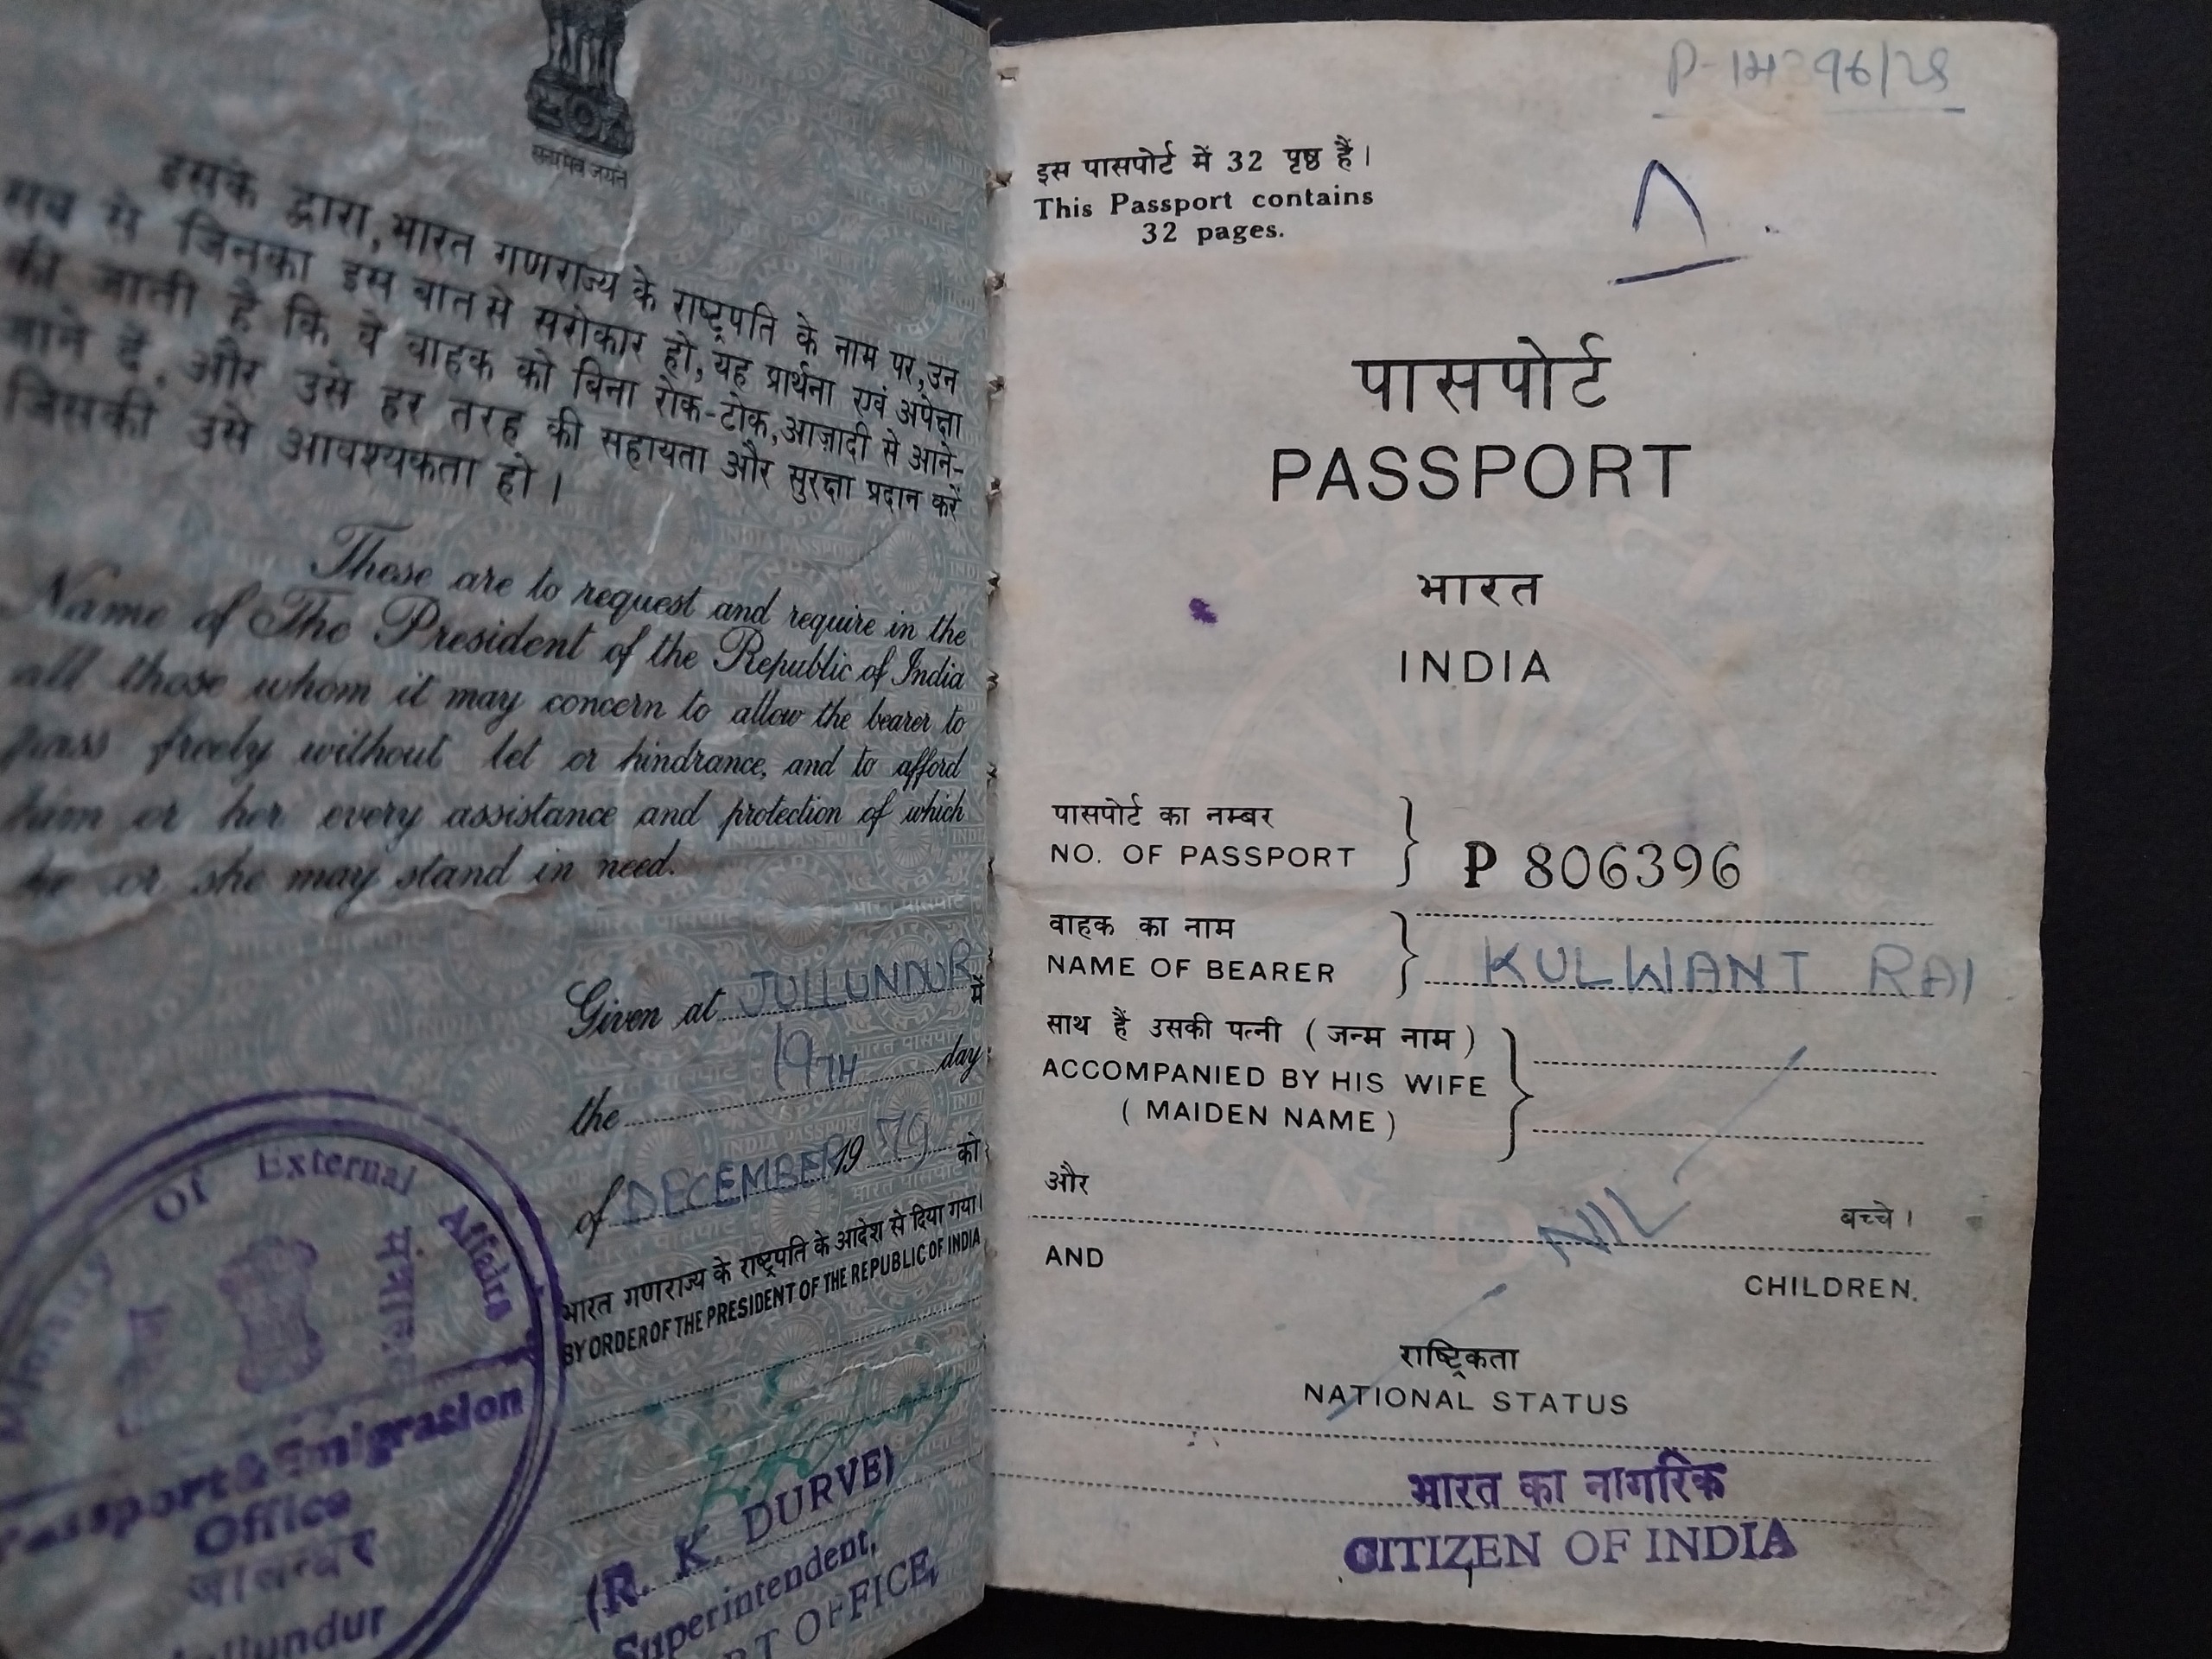 सत्यमेव जयते
इसके द्वारा, भारत गणराज्य के राष्ट्रपति के नाम पर, उन
सब से जिनका इस बात से सरोकार हो, यह प्रार्थना एवं अपेक्षा
की जाती है कि वे वाहक को बिना रोक-टोक, आज़ादी से आने-
जाने दें, और उसे हर तरह की सहायता और सुरक्षा प्रदान करें
जिसकी उसे आवश्यकता हो।
These are to request and require in the
Name of The President of the Republic of India
all those whom it may concern to allow the bearer to
pass freely without let or hindrance, and to afford
him or her every assistance and protection of which
he or she may stand in need.
Given at JULLUNDUR में
the 19TH day
of DECEMBER 1979 को
भारत गणराज्य के राष्ट्रपति के आदेश से दिया गया।
BY ORDER OF THE PRESIDENT OF THE REPUBLIC OF INDIA
(R. K. DURVE)
Superintendent,
OFFICE,
Of External Affairs
मंत्रालय
Passport & Emigration
Office
जालन्धर
Jullundur
इस पासपोर्ट में 32 पृष्ठ हैं।
This Passport contains
32 pages.
पासपोर्ट
PASSPORT
भारत
INDIA
पासपोर्ट का नम्बर
NO. OF PASSPORT
P 806396
वाहक का नाम
NAME OF BEARER
KULWANT RAI
साथ हैं उसकी पत्नी (जन्म नाम)
ACCOMPANIED BY HIS WIFE
(MAIDEN NAME)
और
NIL
बच्चे।
AND
CHILDREN.
राष्ट्रिकता
NATIONAL STATUS
भारत का नागरिक
CITIZEN OF INDIA